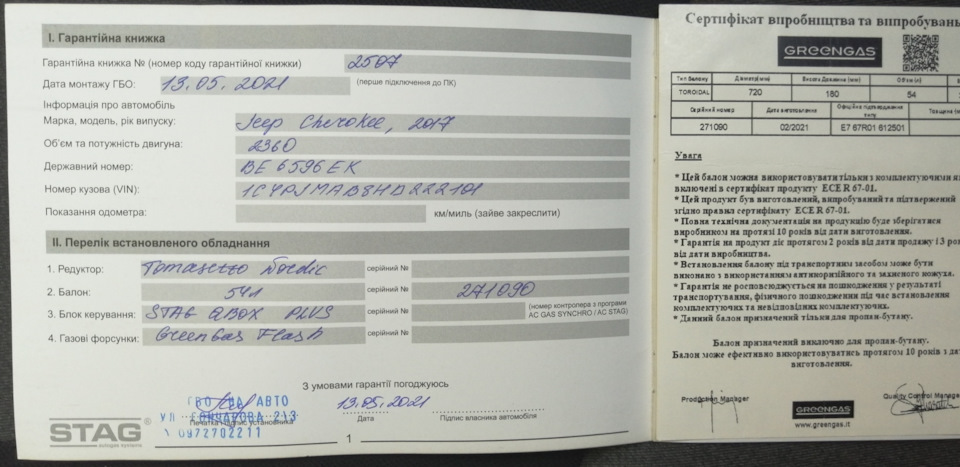 I. Гарантійна книжка
Гарантійна книжка № (номер коду гарантійної книжки) 2507
Дата монтажу ГБО: 13.05.2021 (перше підключення до ПК)
Інформація про автомобіль
Марка, модель, рік випуску: Jeep Cherokee, 2017
Об'єм та потужність двигуна: 2360
Державний номер: ВЕ 6596 ЕК
Номер кузова (VIN): 1C4PJMAB8HD222101
Показання одометра: км/миль (зайве закреслити)
II. Перелік встановленого обладнання
1. Редуктор: Tomasetto Nordic серійний №
2. Балон: 54л серійний № 271090
3. Блок керування: STAG QBOX PLUS серійний № (номер контролера з програми AC GAS SYNCHRO / AC STAG)
4. Газові форсунки: GreenGas Flash серійний №
З умовами гарантії погоджуюсь
ГБО НА АВТО
УЛ ГОНЧАРОВА 213
0972702211
Печатка і підпис установника
13.05.2021
Дата
Підпис власника автомобіля
STAG
autogas systems
1
Сертифікат виробництва та випробувань
GREENGAS
Тип балону Діаметр(мм) Висота Довжина (мм) Об'єм (л)
TOROIDAL 720 180 54
Серійний номер Дата виготовлення Офіційна підтвердження типу Товщина (мм)
271090 02/2021 E7 67R01 612501
Увага
* Цей балон можна використовувати тільки з комплектуючими як
включені в сертифікат продукту ECE R 67-01.
* Цей продукт був виготовлений, випробуваний та підтверджений
згідно правил сертифікату ECE R 67-01.
* Повна технічна документація на продукцію буде зберігатися
виробником на протязі 10 років від дати виготовлення.
* Гарантія на продукт діє протягом 2 років від дати продажу і 3 рок
від дати виробництва.
* Встановлення балону під транспортним засобом може бути
виконано з використанням антикорозійного та захисного кожуха.
* Гарантія не розповсюджується на пошкодження у результаті
транспортування, фізичного пошкодження під час встановлення
комплектуючих та невідповідних комплектуючих.
* Данний балон призначений тільки для пропан-бутану.
Балон призначений виключно для пропан-бутану.
Балон може ефективно використовуватись протягом 10 років з дати
виготовлення.
Production Manager
Quality Control Manager
GREENGAS
www.greengas.it